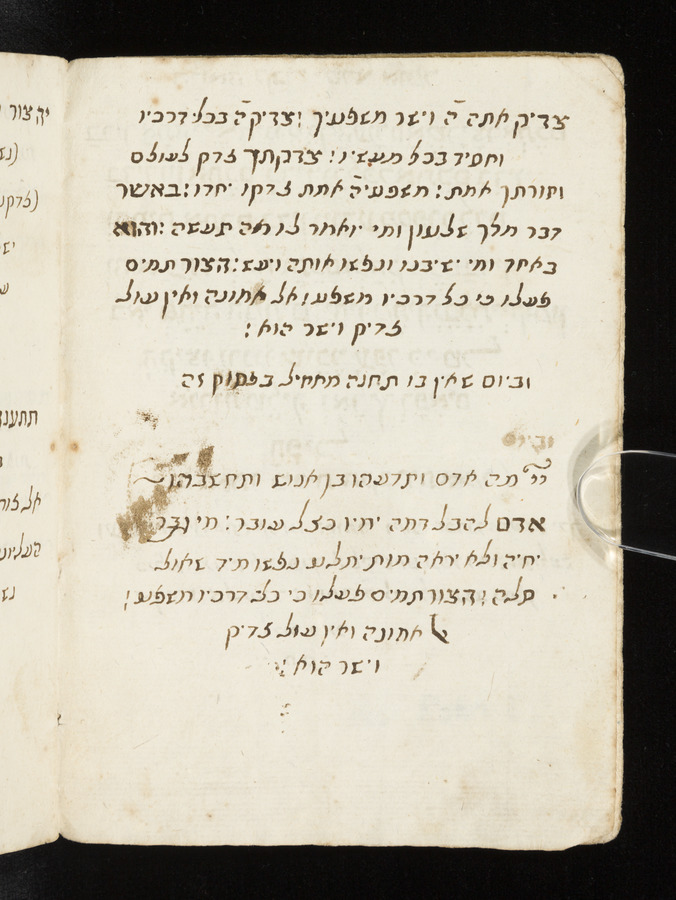 צדיק אתה ה' וישר משפטיך : צדיק ה' בכל דרכיו
וחסיד בכל מעשיו : צדקתך צדק לעולם
ותורתך אמת : משפטי ה' אמת צדקו יחדו : באשר
דבר מלך שלטון ומי יאמר לו מה תעשה : והוא
באחד ומי ישיבנו ונפשו אותה ויעש : הצור תמים
פעלו כי כל דרכיו משפט : אל אמונה ואין עול
צדיק וישר הוא :
וביום שאין בו תחנה מתחיל בפסוק זה
וביום
יי' מה אדם ותדעהו בן אנוש ותחשבהו
אדם להבל דמה ימיו כצל עובר : מי גבר
יחיה ולא יראה מות ימלט נפשו מיד שאול
סלה : הצור תמים פעלו כי כל דרכיו משפט :
אל אמונה ואין עול צדיק
וישר הוא :
יה צור
(נש
(צדקו
יש
תתענג
אל
העליון
נש